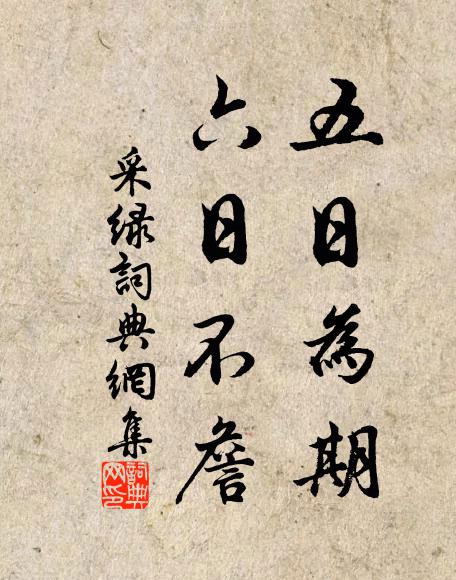 五日為期
六日不詹
采绿詞典網集
詞典网印